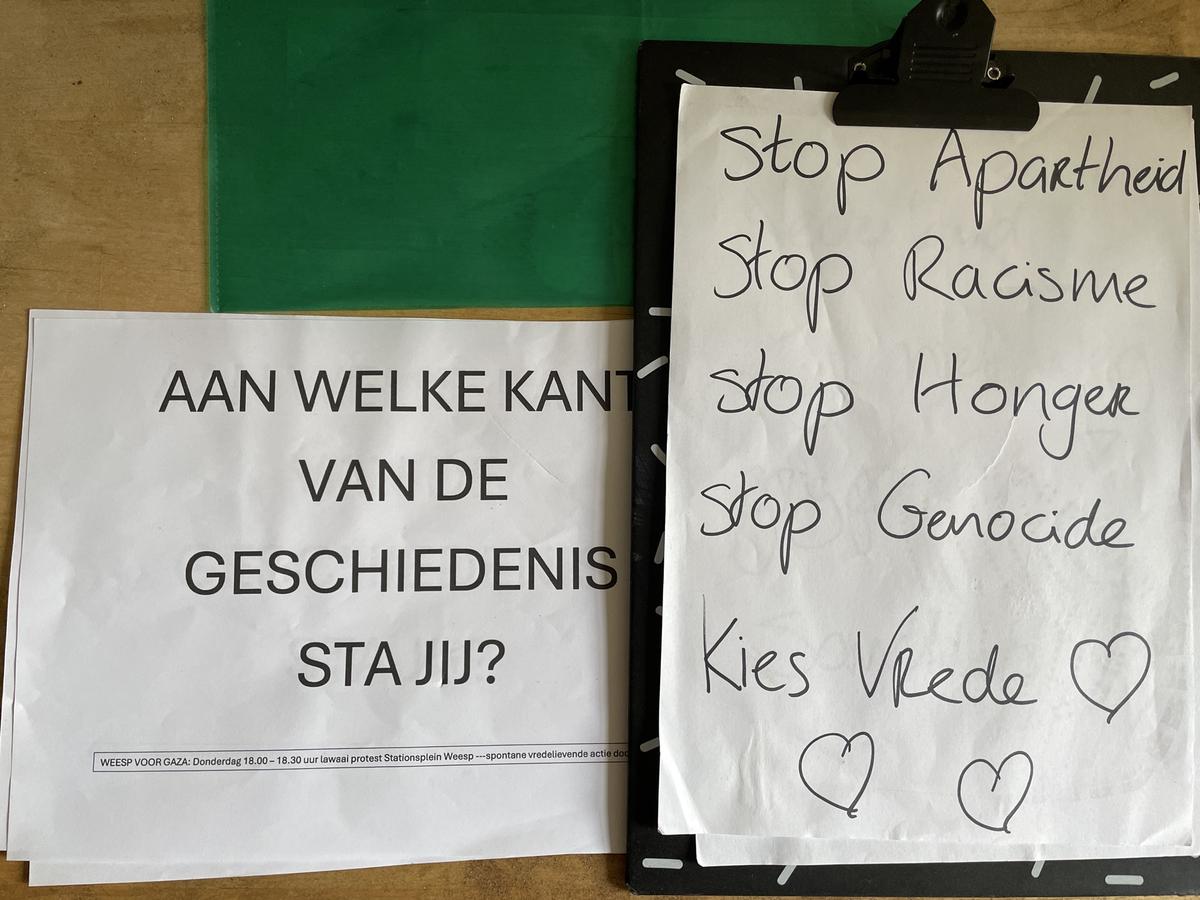 AAN WELKE KANT
VAN DE
GESCHIEDENIS
STA JIJ?
WEESP VOOR GAZA: Donderdag 18.00 – 18.30 uur lawaai protest Stationsplein Weesp ---spontane vredelievende actie
Stop Apartheid
Stop Racisme
Stop Honger
Stop Genocide
Kies Vrede